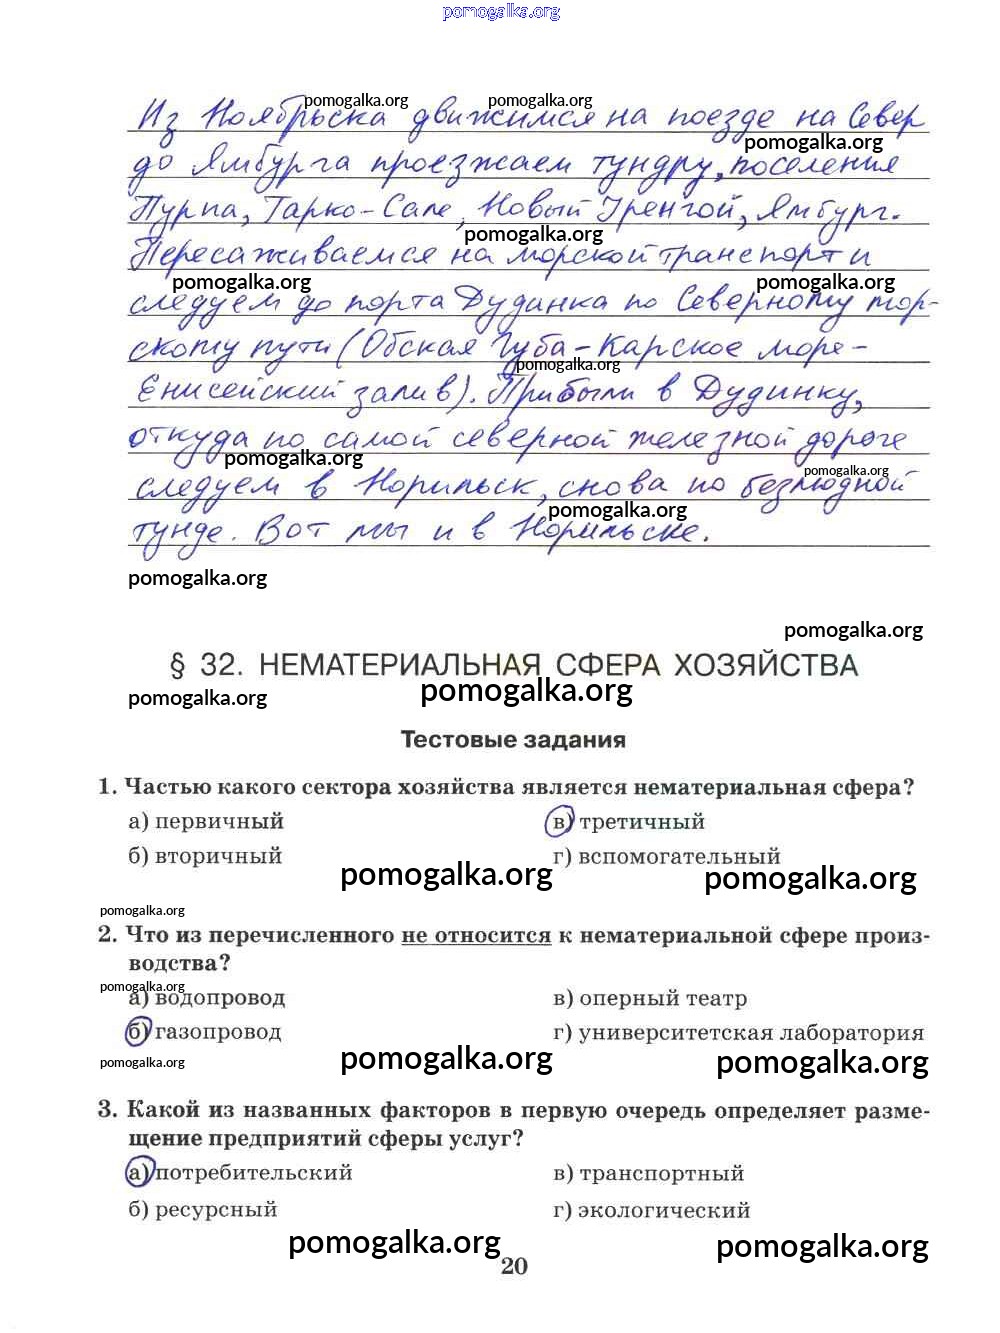 pomogalka.org
pomogalka.org pomogalka.org
Из Ноябрьска движимся на поезде на Север
pomogalka.org
до Ямбурга проезжаем тундру, поселения
Пурпа, Тарко-Сале, Новый Уренгой, Ямбург.
pomogalka.org
Пересаживаемся на морской транспорт и
pomogalka.org pomogalka.org
следуем до порта Дудинка по Северному мор-
скому пути (Обская Губа-Карское море-
pomogalka.org
Енисейский залив). Прибыли в Дудинку,
откуда по самой северной железной дороге
pomogalka.org pomogalka.org
следуем в Норильск, снова по безлюдной
pomogalka.org
тунде. Вот мы и в Норильске.
pomogalka.org
pomogalka.org
§ 32. НЕМАТЕРИАЛЬНАЯ СФЕРА ХОЗЯЙСТВА
pomogalka.org pomogalka.org
Тестовые задания
1. Частью какого сектора хозяйства является нематериальная сфера?
а) первичный в) третичный
б) вторичный г) вспомогательный
pomogalka.org pomogalka.org
pomogalka.org
2. Что из перечисленного не относится к нематериальной сфере произ-
водства?
pomogalka.org
а) водопровод в) оперный театр
б) газопровод г) университетская лаборатория
pomogalka.org pomogalka.org pomogalka.org
3. Какой из названных факторов в первую очередь определяет разме-
щение предприятий сферы услуг?
а) потребительский в) транспортный
б) ресурсный г) экологический
pomogalka.org pomogalka.org
20